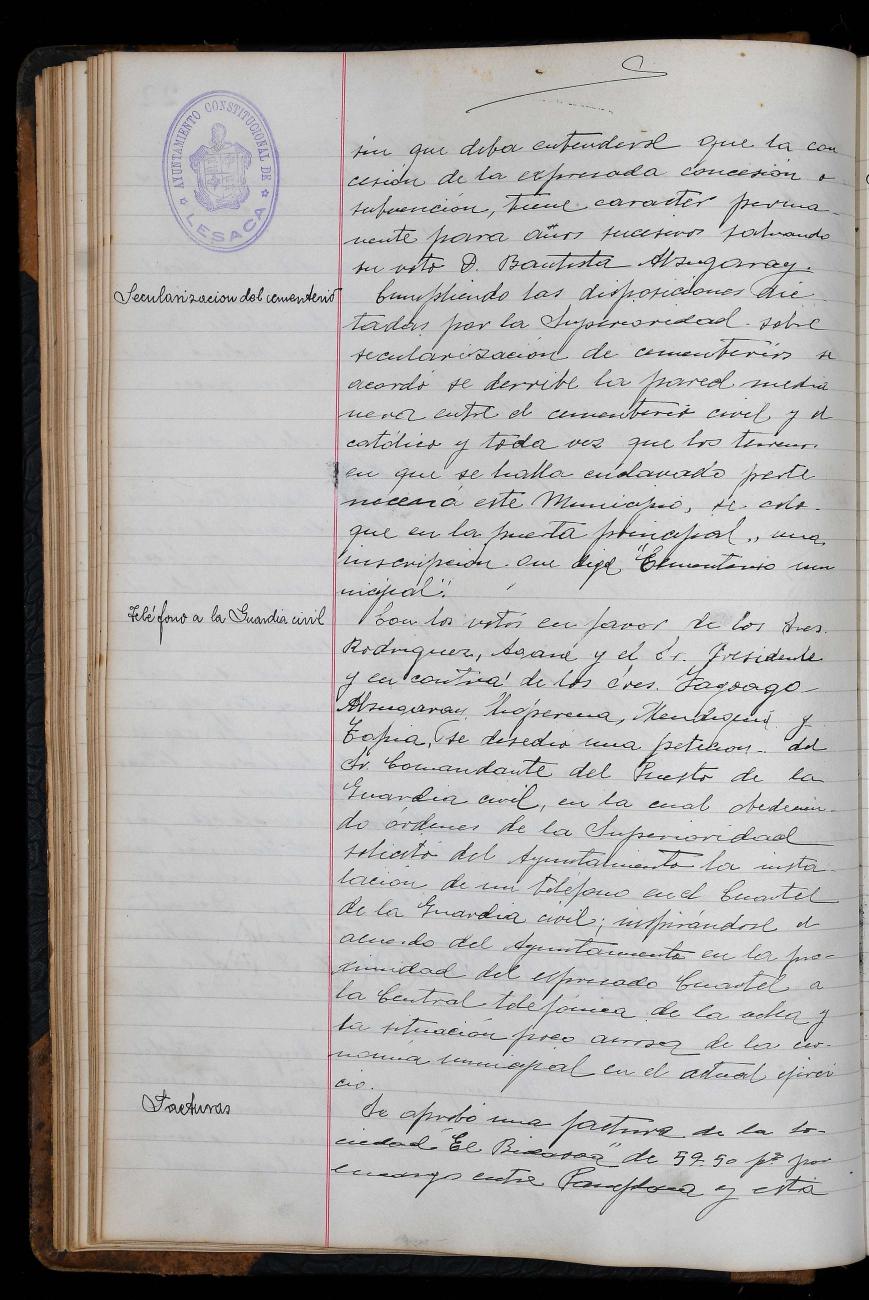 AYUNTAMIENTO CONSTITUCIONAL DE
LESACA
sin que deba entenderse que la con
cesión de la expresada concesión o
subvención, tiene caracter perma-
nente para años sucesivos salvando
su voto D. Bautista Alzugaray.
Secularizacion del cementerio
Cumpliendo las disposiciones dic-
tadas por la Superioridad sobre
secularización de cementerios se
acordó se derribe la pared media
nera entre el cementerio civil y el
católico y toda vez que los terrenos
en que se halla enclavado perte
necen á este Municipio, se colo-
que en la puerta principal, una
inscripcion que diga "Cementerio mu
nicipal".
Teléfono a la Guardia civil
Con los votos en favor de los Sres.
Rodriguez, y el Sr. Presidente
y en contra de los Sres.
Alzugaray, y
Tapia, se una peticion del
Sr. Comandante del Puesto de la
Guardia civil, en la cual obedecien-
do ordenes de la Superioridad
solicitó del Ayuntamiento la insta-
lación de un teléfono en el Cuartel
de la Guardia civil; inspirándose el
acuerdo del Ayuntamiento en la pro-
ximidad del expresado Cuartel a
la Central telefónica de la villa y
la situación poco airosa de la eco-
nomia municipal en el actual ejerci
cio.
Facturas
Se aprobó una factura de la So-
ciedad "El Bidasoa" de 59-50 pts por
encargo entre Pamplona y esta